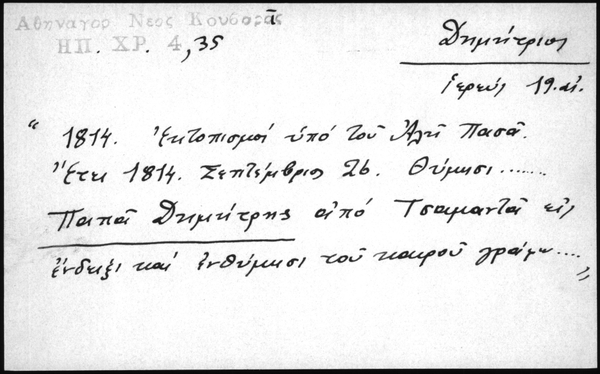 Αθηναγορ Νεος Κουβαρᾶς
ΗΠ. ΧΡ. 4, 35
Δημήτριος
ἱερεύς 19. αἰ.
“ 1814. Ἐκτοπισμοί ὑπό τοῦ Ἀλῆ Πασᾶ.
Ἔτει 1814. Σεπτέμβριος 26. Θύμισι......
Παπᾶ Δημήτρης ἀπό Τσαμαντᾶ εἰς
ἔνδειξι καί ἐνθύμησι τοῦ καιροῦ γράφω.... „